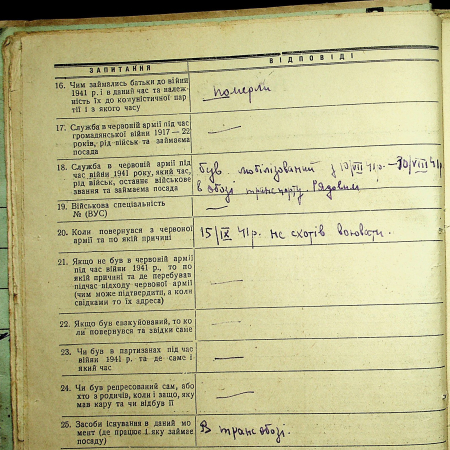 ЗАПИТАННЯ
ВІДПОВІДІ
16. Чим займались батьки до війни
1941 р. і в даний час та належ-
ність їх до комуністичної пар-
тії і з якого часу
померли
17. Служба в червоній армії під час
громадянської війни 1917—22
років, рід військ та займаєма
посада
—
18. Служба в червоній армії під
час війни 1941 року, який час,
рід військ, останнє військове
звання та займаєма посада
був мобілізований з 10/VII 41р.—30/VIII 41р.
в обозі транспорту Рядовим
19. Військова спеціальність
№ (ВУС)
—
20. Коли повернувся з червоної
армії та по якій причині
15/IX 41р. не схотів воювати.
21. Якщо не був в червоній армії
під час війни 1941 р., то по
якій причині та де перебував
підчас відходу червоної армії
(чим може підтвердити, а коли
свідками то їх адреса)
—
22. Якщо був евакуйований, то ко-
ли повернувся та звідки саме
—
23. Чи був в партизанах під час
війни 1941 р. та де саме і
який час
—
24. Чи був репресований сам, або
хто з родичів, коли і защо, яку
мав кару та чи відбув її
—
25. Засоби існування в даний мо-
мент (де працює і яку займає
посаду)
В трансобозі.